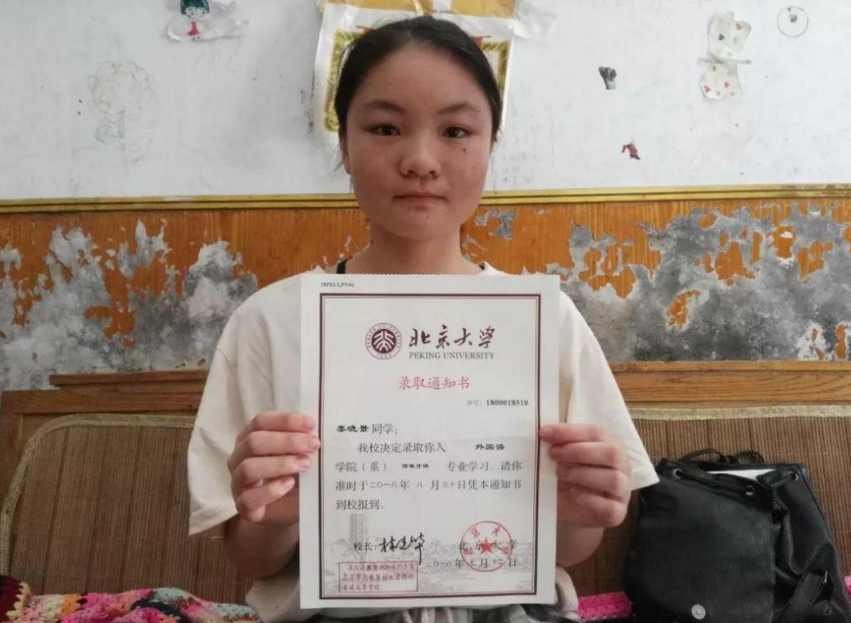 北京大学
PEKING UNIVERSITY
录取通知书
学号：1800018510
同学：
我校决定录取你入 外国语
学院（系） 西班牙语 专业学习。请你
准时于二〇一八年 八 月三十日凭本通知书
到校报到。
校长：林建华
北京大学
二〇一八年 月 日